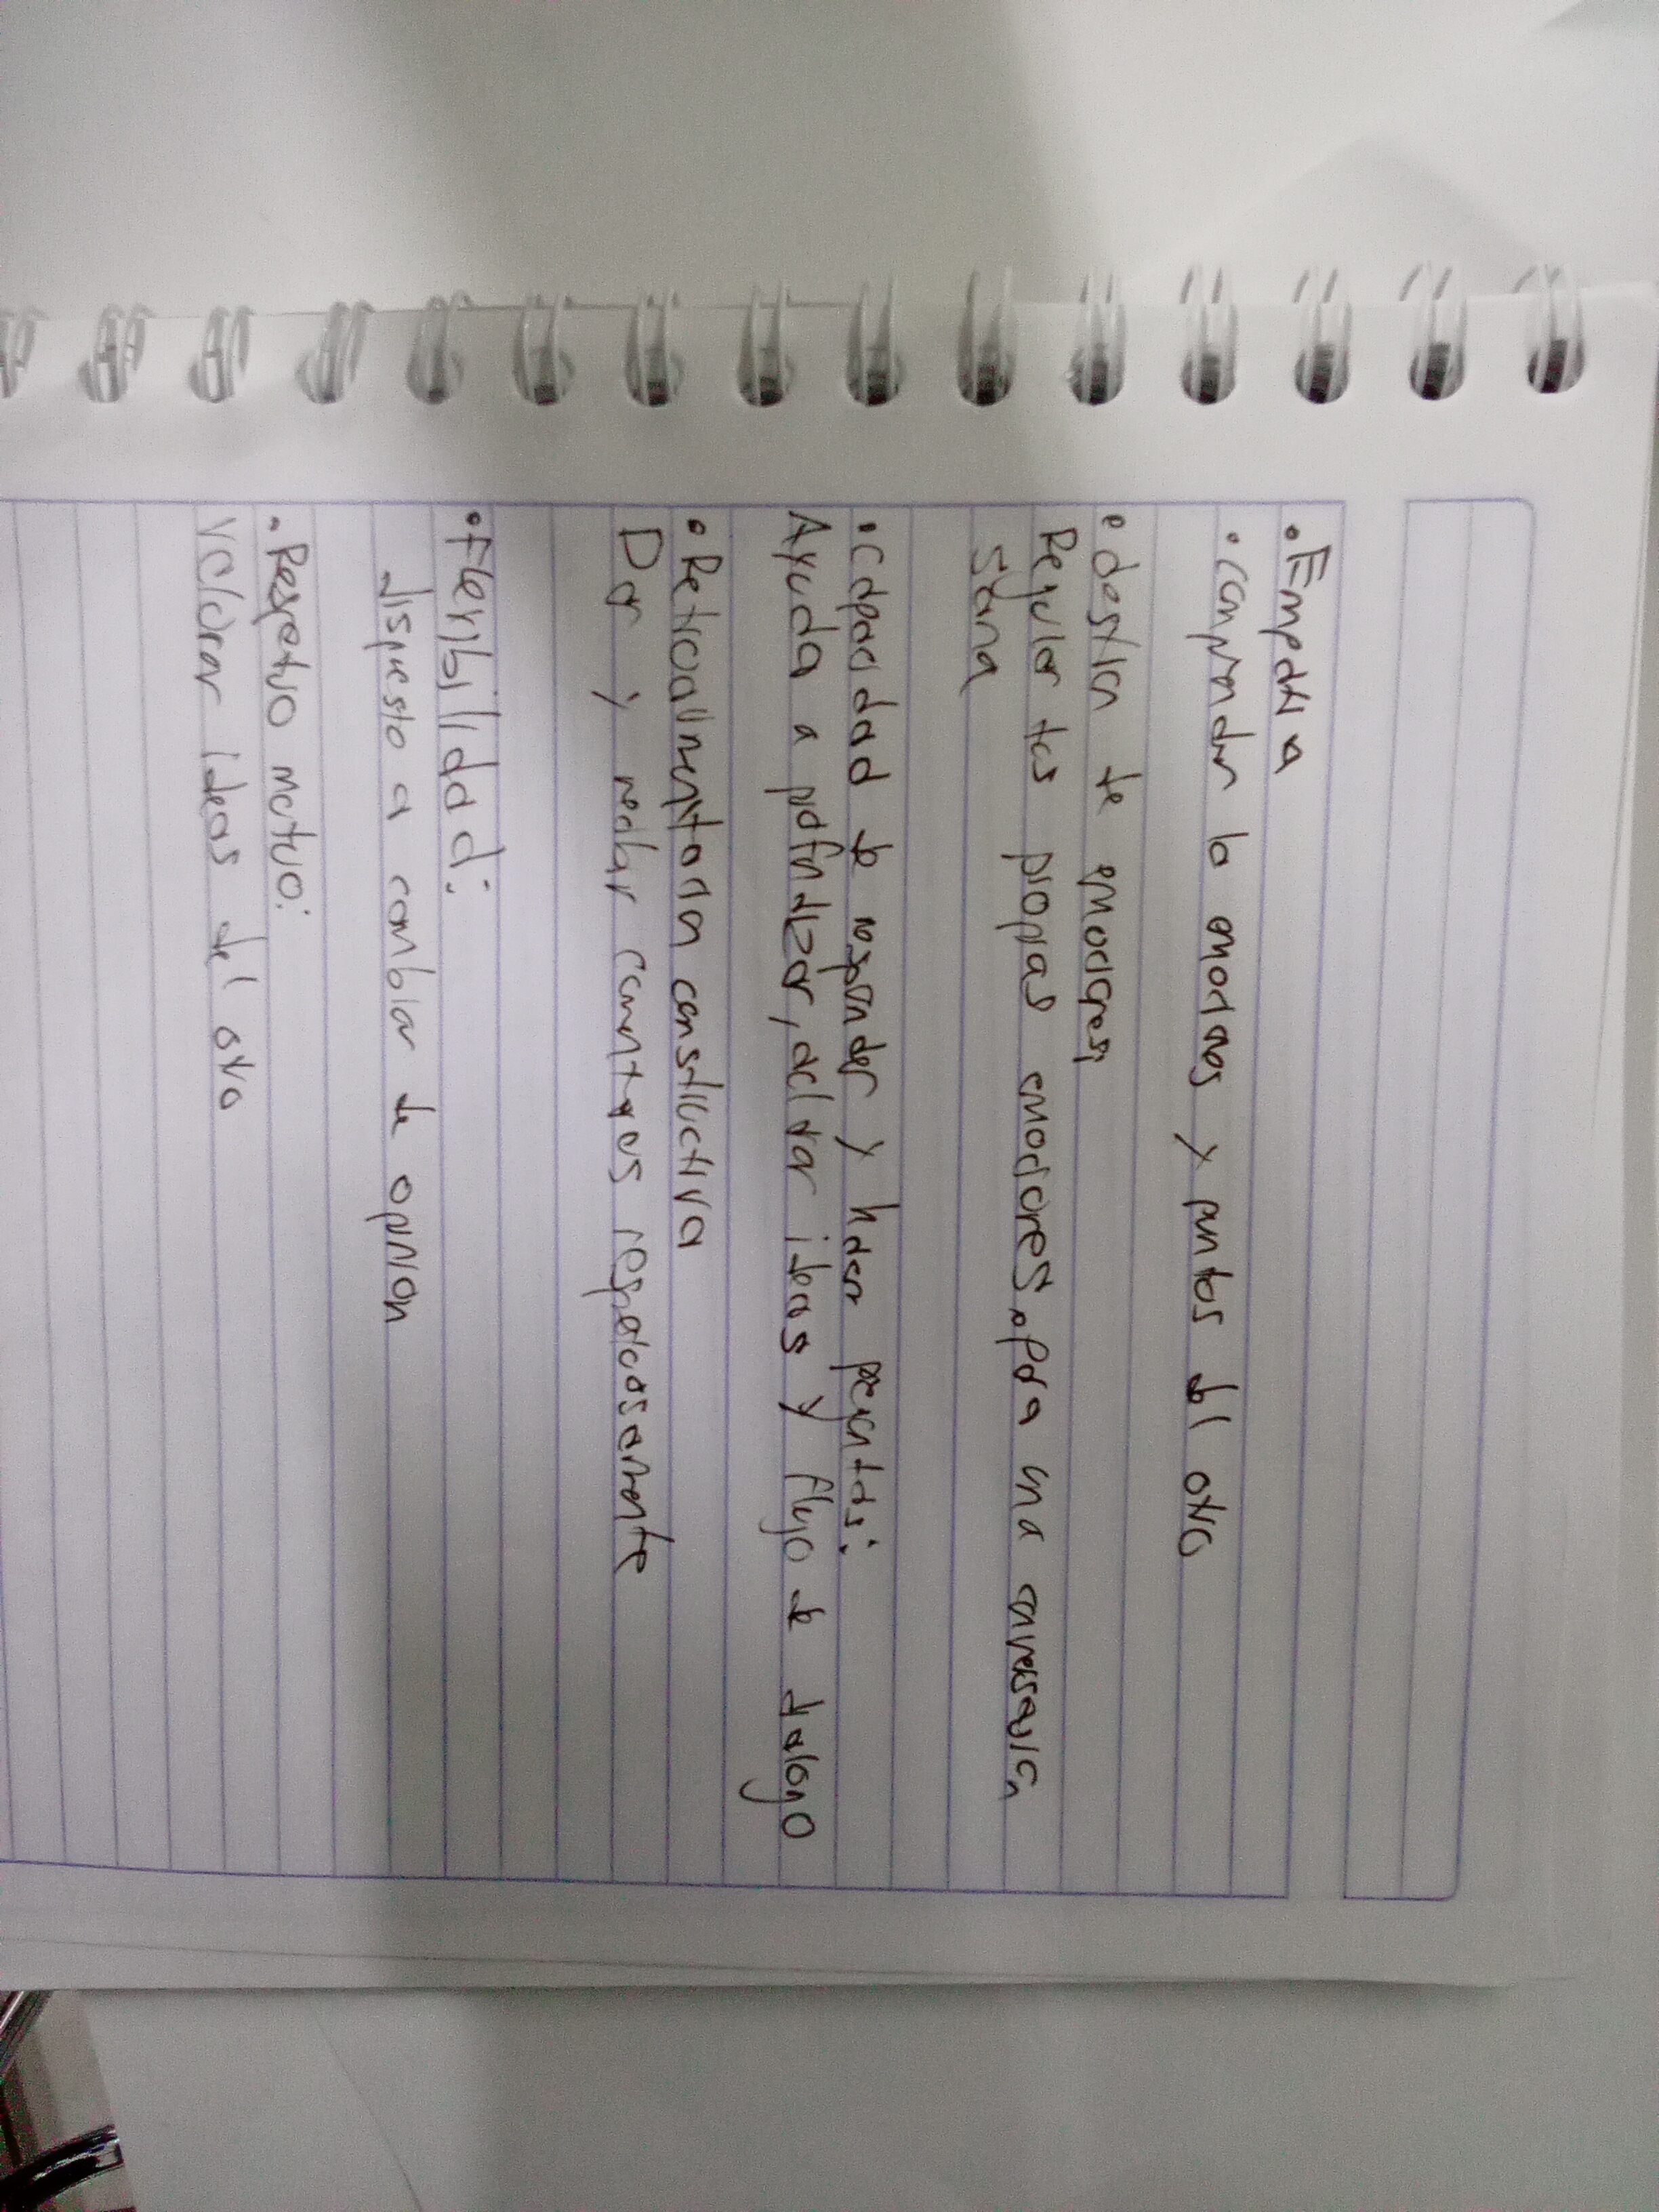 • Empatia
• comprender la emociones y puntos del otro
• Gestion de emociones;
Regular tas propias emociones. para una conversación
Sana
• Capacidad de responder y hacer preguntas:
Ayuda a profundizar, aclarar ideas y flujo de dialogo
• Retroalimentacion constructiva
Dar y recibir comentarios respetuosamente
• Flexibilidad:
dispuesto a cambiar de opinion
• Respetuo mutuo:
valorar ideas del otro